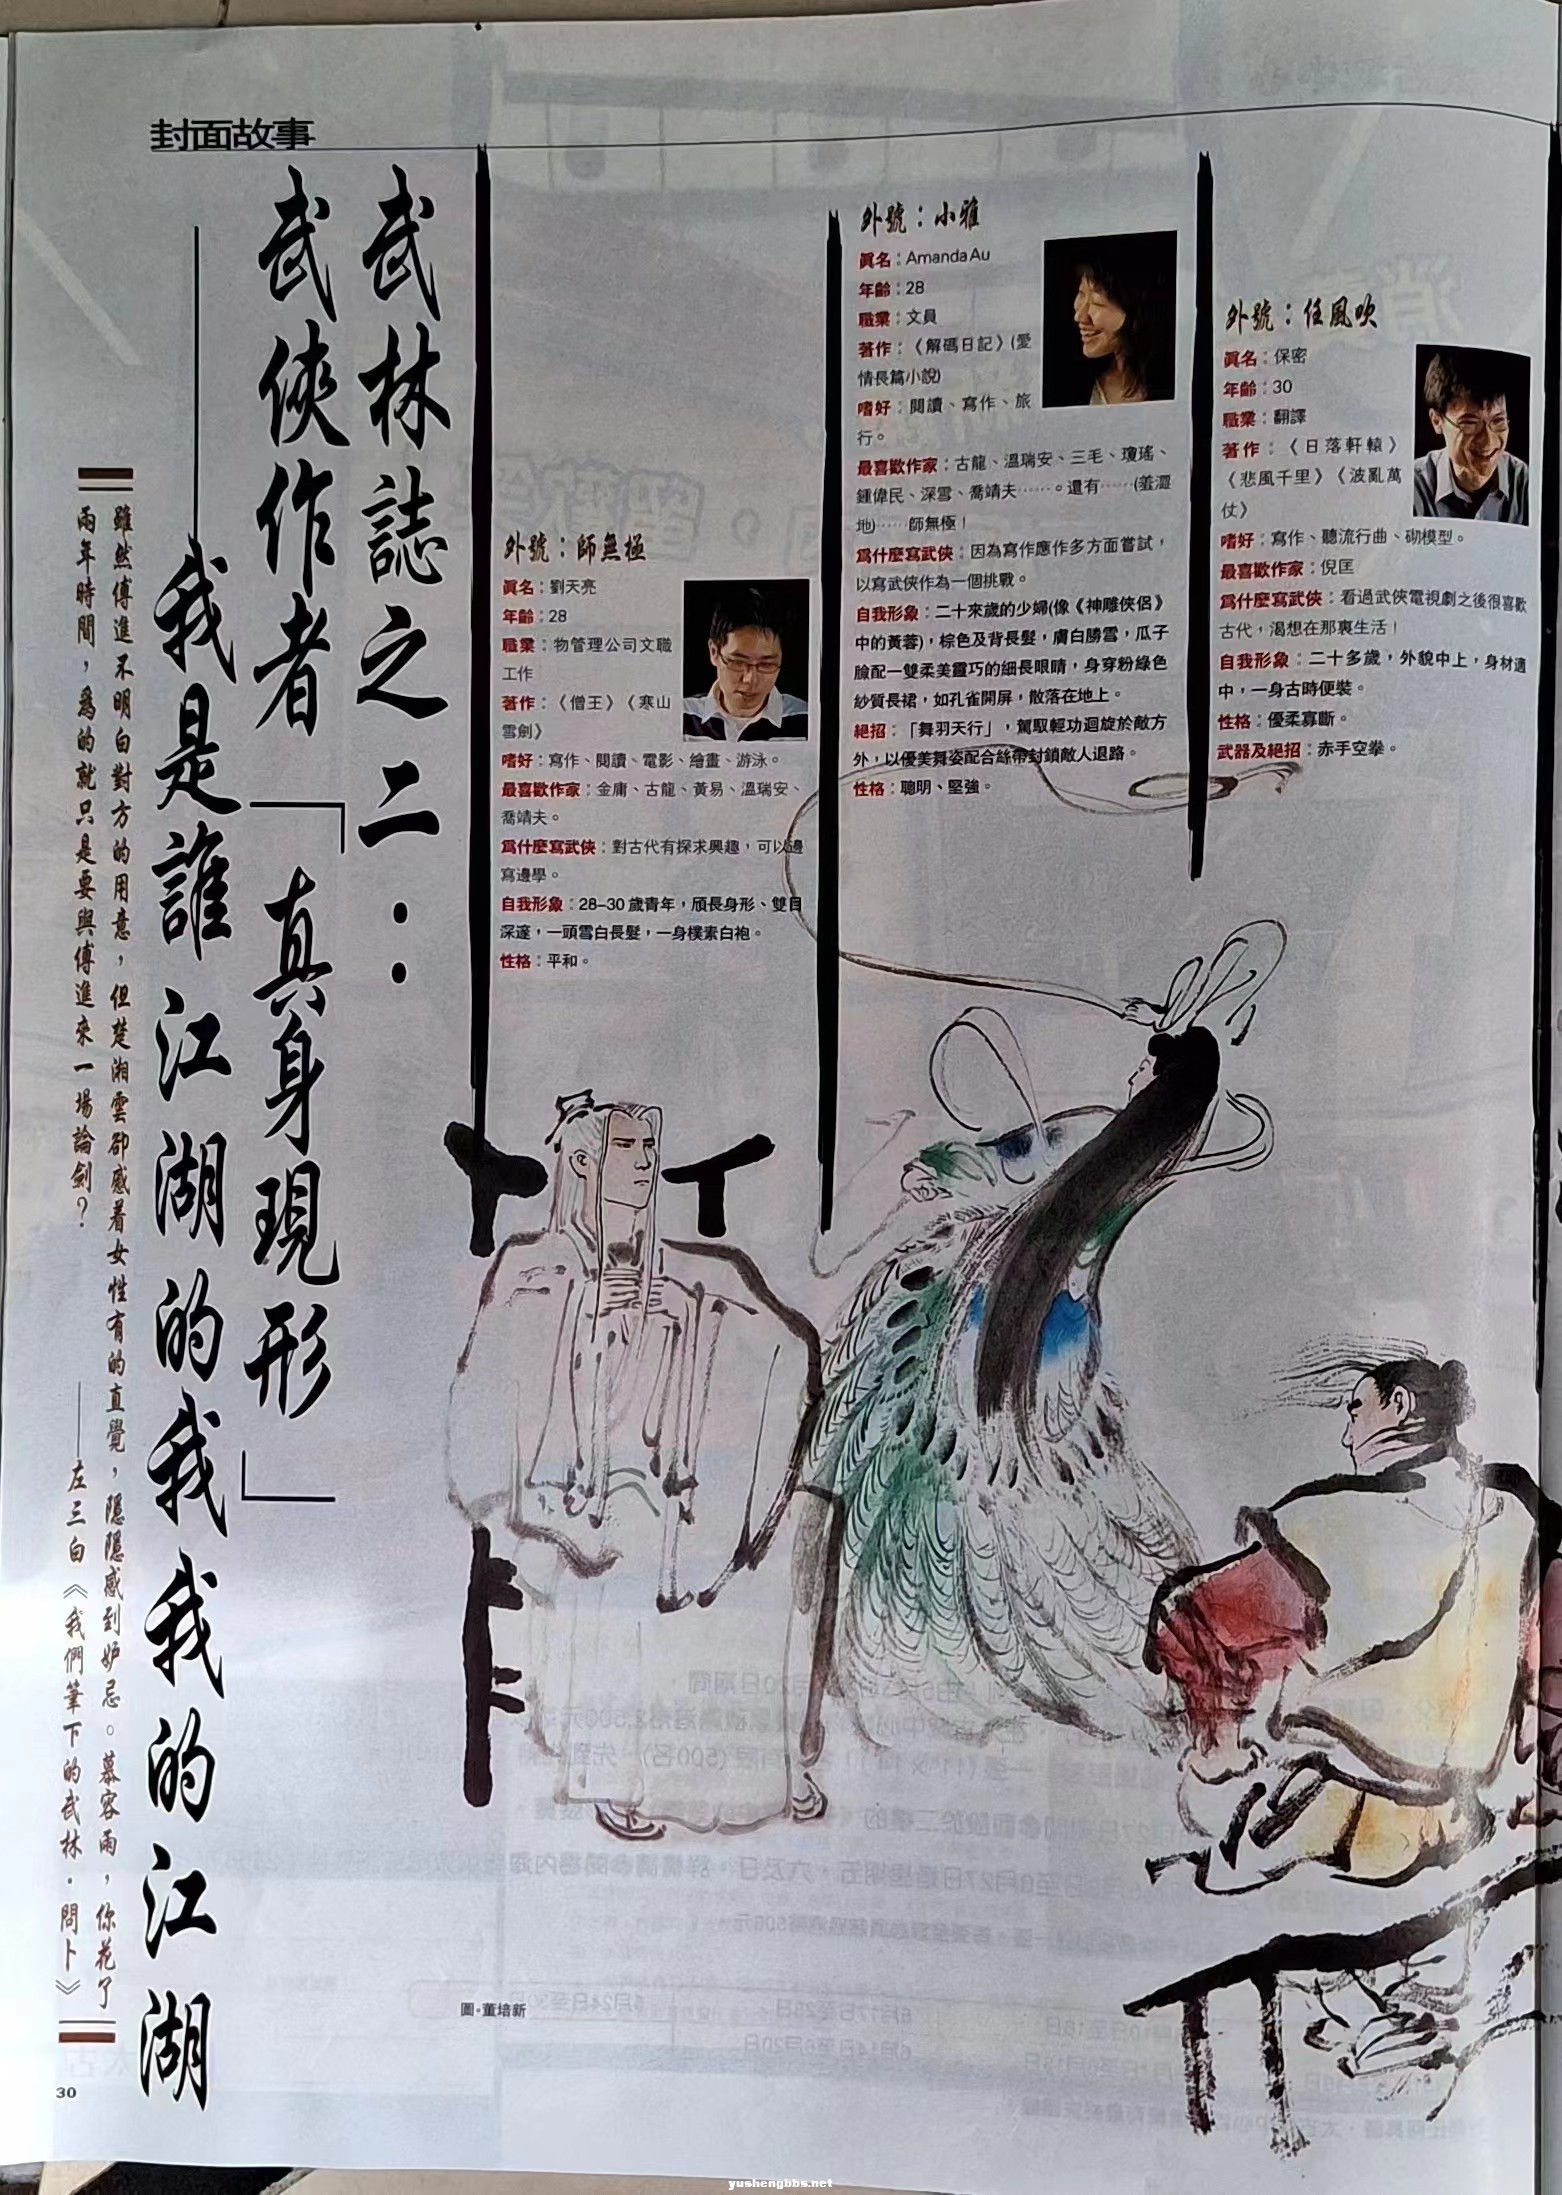 封面故事
武林誌之二：
武俠作者「真身現形」
——我是誰 江湖的我 我的江湖
雖然傅進不明白對方的用意，但楚湘雲卻感着女性有的直覺，隱隱感到妒忌。慕容雨，你花了
兩年時間，為的就只是要與傅進來一場論劍？ ——左三白《我們筆下的武林．問卜》
外號：師無極
眞名：劉天亮
年齡：28
職業：物管理公司文職
工作
著作：《僧王》《寒山
雪劍》
嗜好：寫作、閱讀、電影、繪畫、游泳。
最喜歡作家：金庸、古龍、黃易、溫瑞安、
喬靖夫。
爲什麼寫武俠：對古代有探求興趣，可以邊
寫邊學。
自我形象：28–30歲青年，頎長身形、雙目
深邃，一頭雪白長髮，一身樸素白袍。
性格：平和。
外號：小雅
眞名：Amanda Au
年齡：28
職業：文員
著作：《解碼日記》(愛
情長篇小說)
嗜好：閱讀、寫作、旅
行。
最喜歡作家：古龍、溫瑞安、三毛、瓊瑤、
鍾偉民、深雪、喬靖夫……。還有……(羞澀
地)……師無極！
爲什麼寫武俠：因為寫作應作多方面嘗試，
以寫武俠作為一個挑戰。
自我形象：二十來歲的少婦(像《神雕俠侶》
中的黃蓉)，棕色及背長髮，膚白勝雪，瓜子
臉配一雙柔美靈巧的細長眼睛，身穿粉綠色
紗質長裙，如孔雀開屏，散落在地上。
絕招：「舞羽天行」，駕馭輕功迴旋於敵方
外，以優美舞姿配合絲帶封鎖敵人退路。
性格：聰明、堅強。
外號：任風吹
眞名：保密
年齡：30
職業：翻譯
著作：《日落軒轅》
《悲風千里》《波亂萬
仗》
嗜好：寫作、聽流行曲、砌模型。
最喜歡作家：倪匡
爲什麼寫武俠：看過武俠電視劇之後很喜歡
古代，渴想在那裏生活！
自我形象：二十多歲，外貌中上，身材適
中，一身古時便裝。
性格：優柔寡斷。
武器及絕招：赤手空拳。
圖•董培新
30
yushengbbs.net